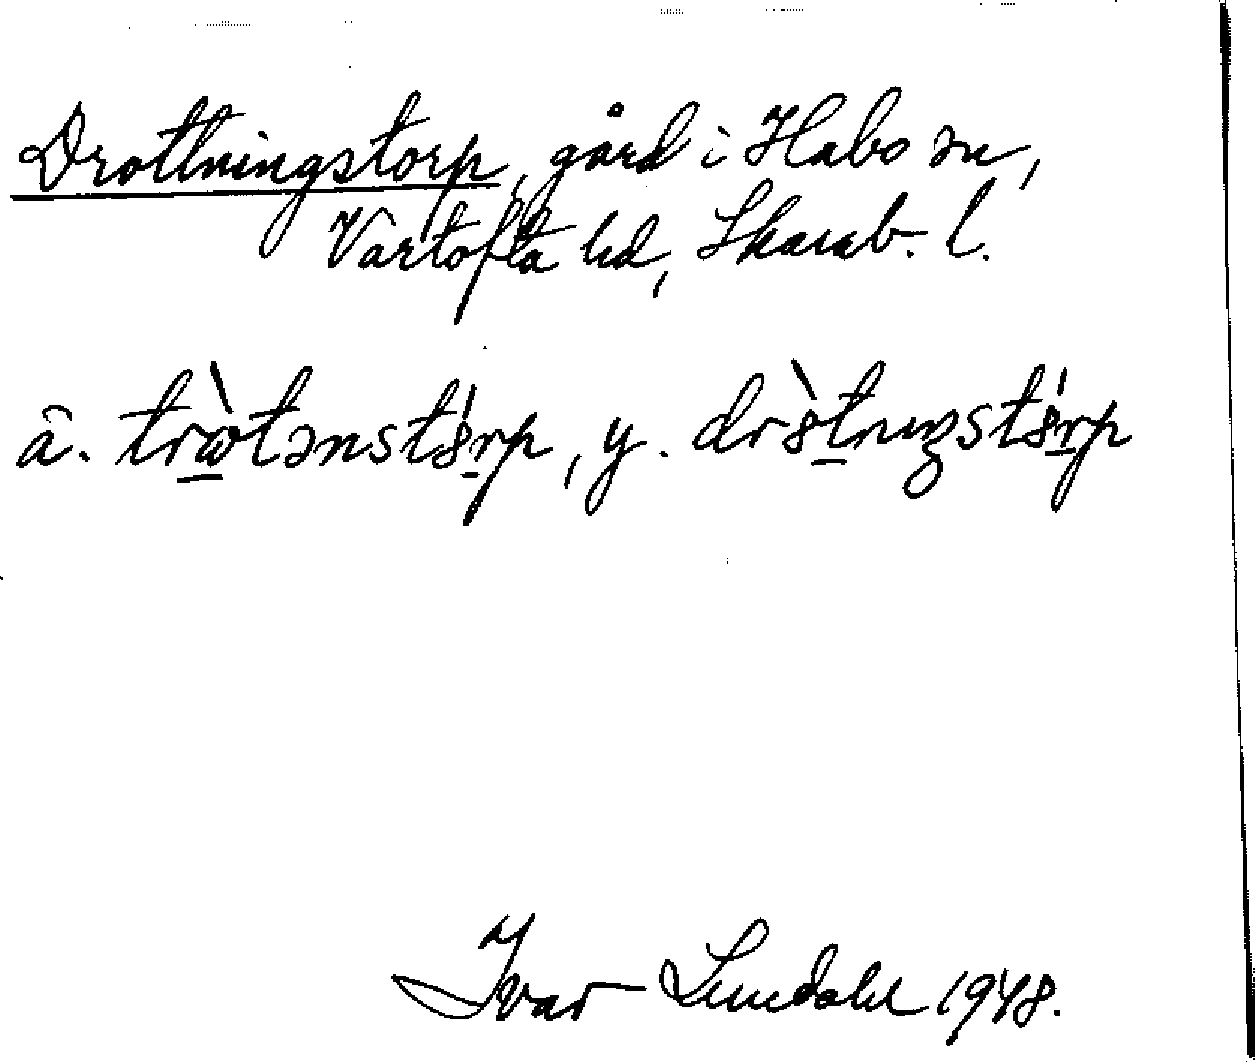 Drottningstorp, gård i Habo sn,
Vartofta hd, Skarab. l.
ä. trὼtənstȣ́rp, y. drȣ̀tnıŋstȣ́rp
Ivar Lundahl 1948.